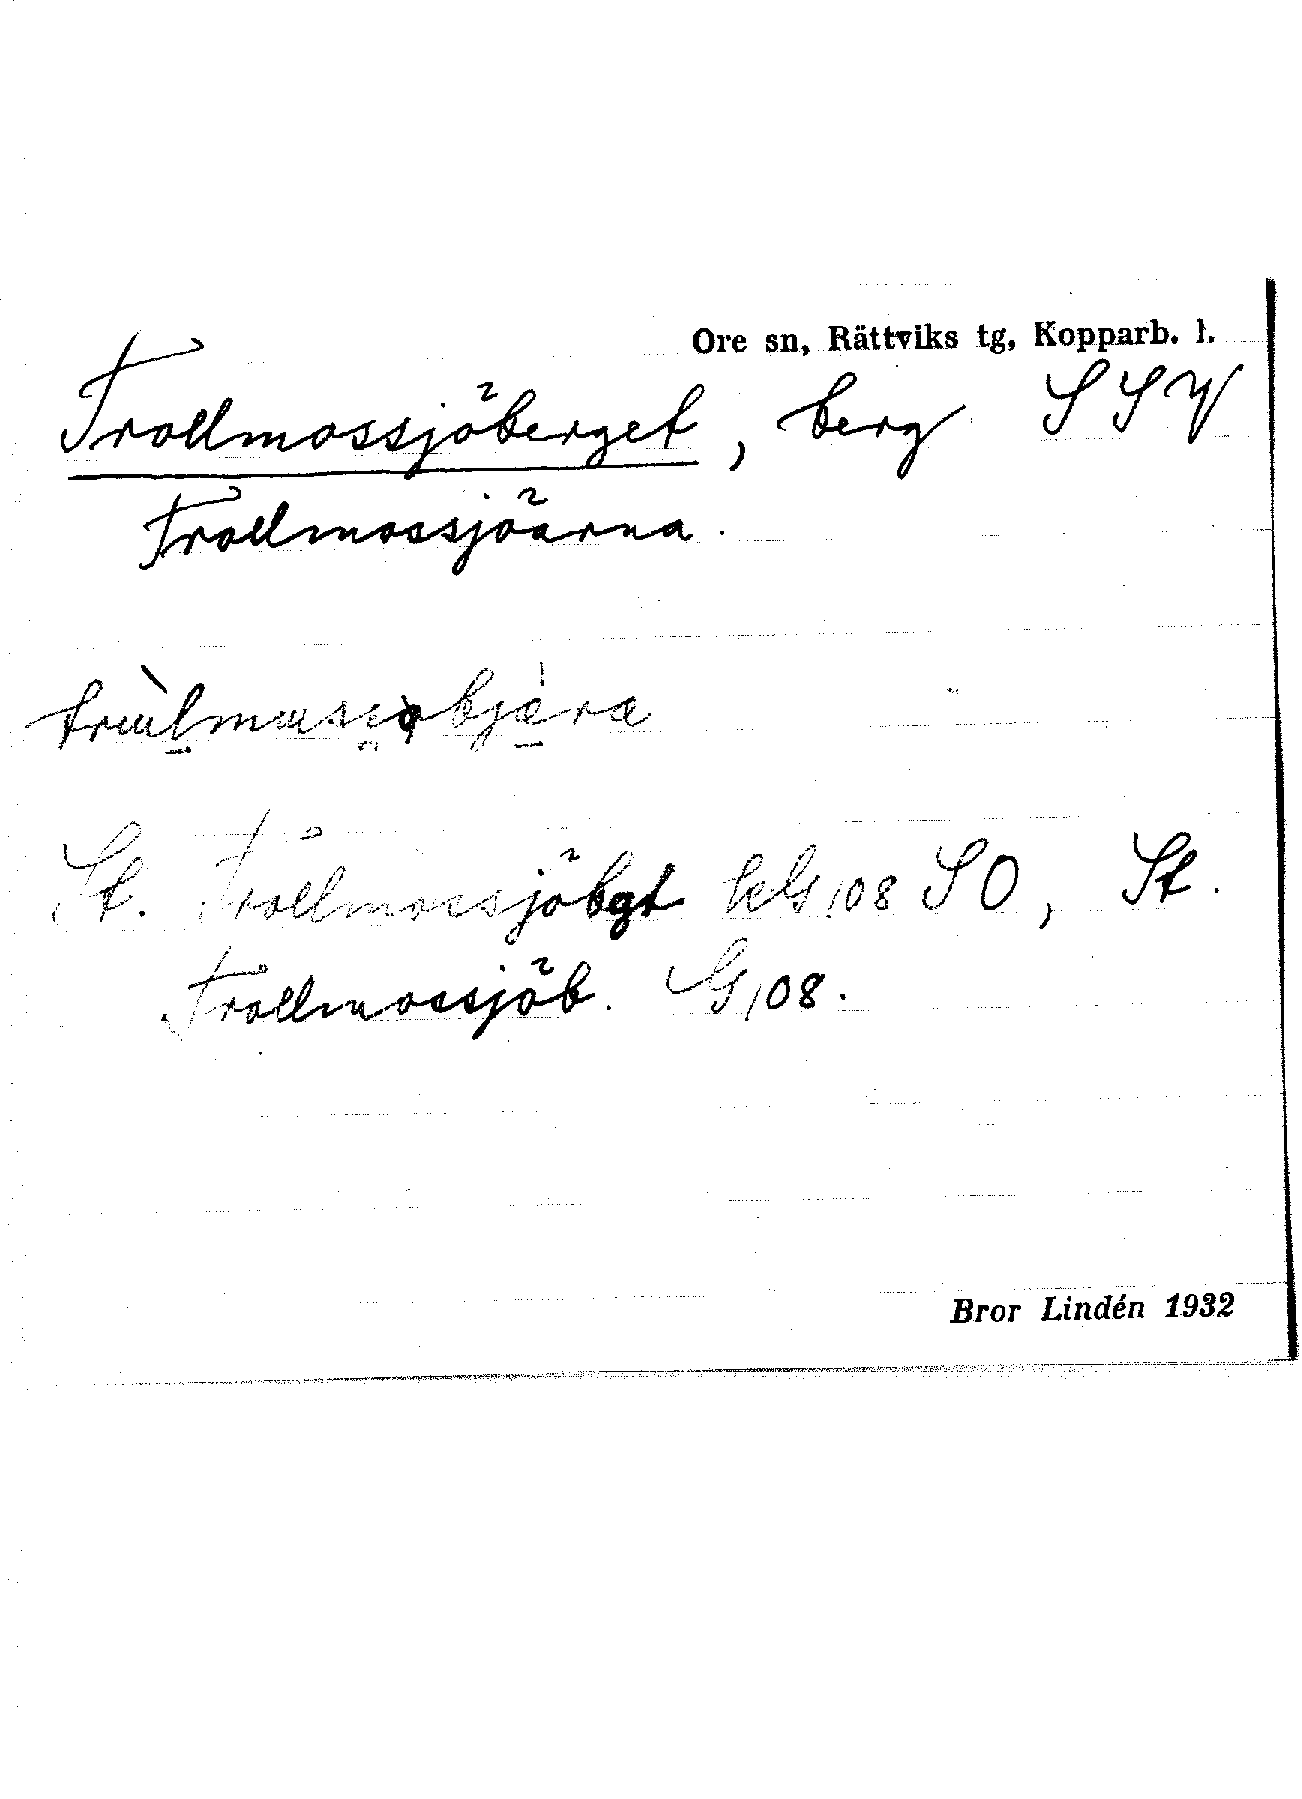 Ore sn, Rättviks tg, Kopparb. l.
Trollmossjöberget, berg SSV
Trollmossjöarna.
St. Trollmossjöbgt G108 SO, St.
Trollmossjöb. G108.
Bror Lindén 1932